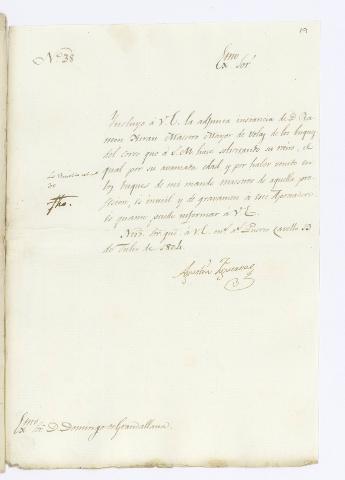 19
Nº 38
Exmo Sor
Incluyo á V.E. la adjunta instancia de D. Ra-
mon Maestro Mayor de Velas de los buques
del Corso que á S.M. hace solicitando su retiro, el
qual por su abanzada edad y por haber venido en
los buques de mi mando maestros de aquella pro-
fesion, es inutil y de gravamen á este Apostadero
es quanto puedo informar á V.E.
Ntro. Sor gue. á V.E. ms. as. Puerto Cavello 13
de Julio de 1804
Agustin
fho.
Exmo Sor D. Domingo de Grandallana.